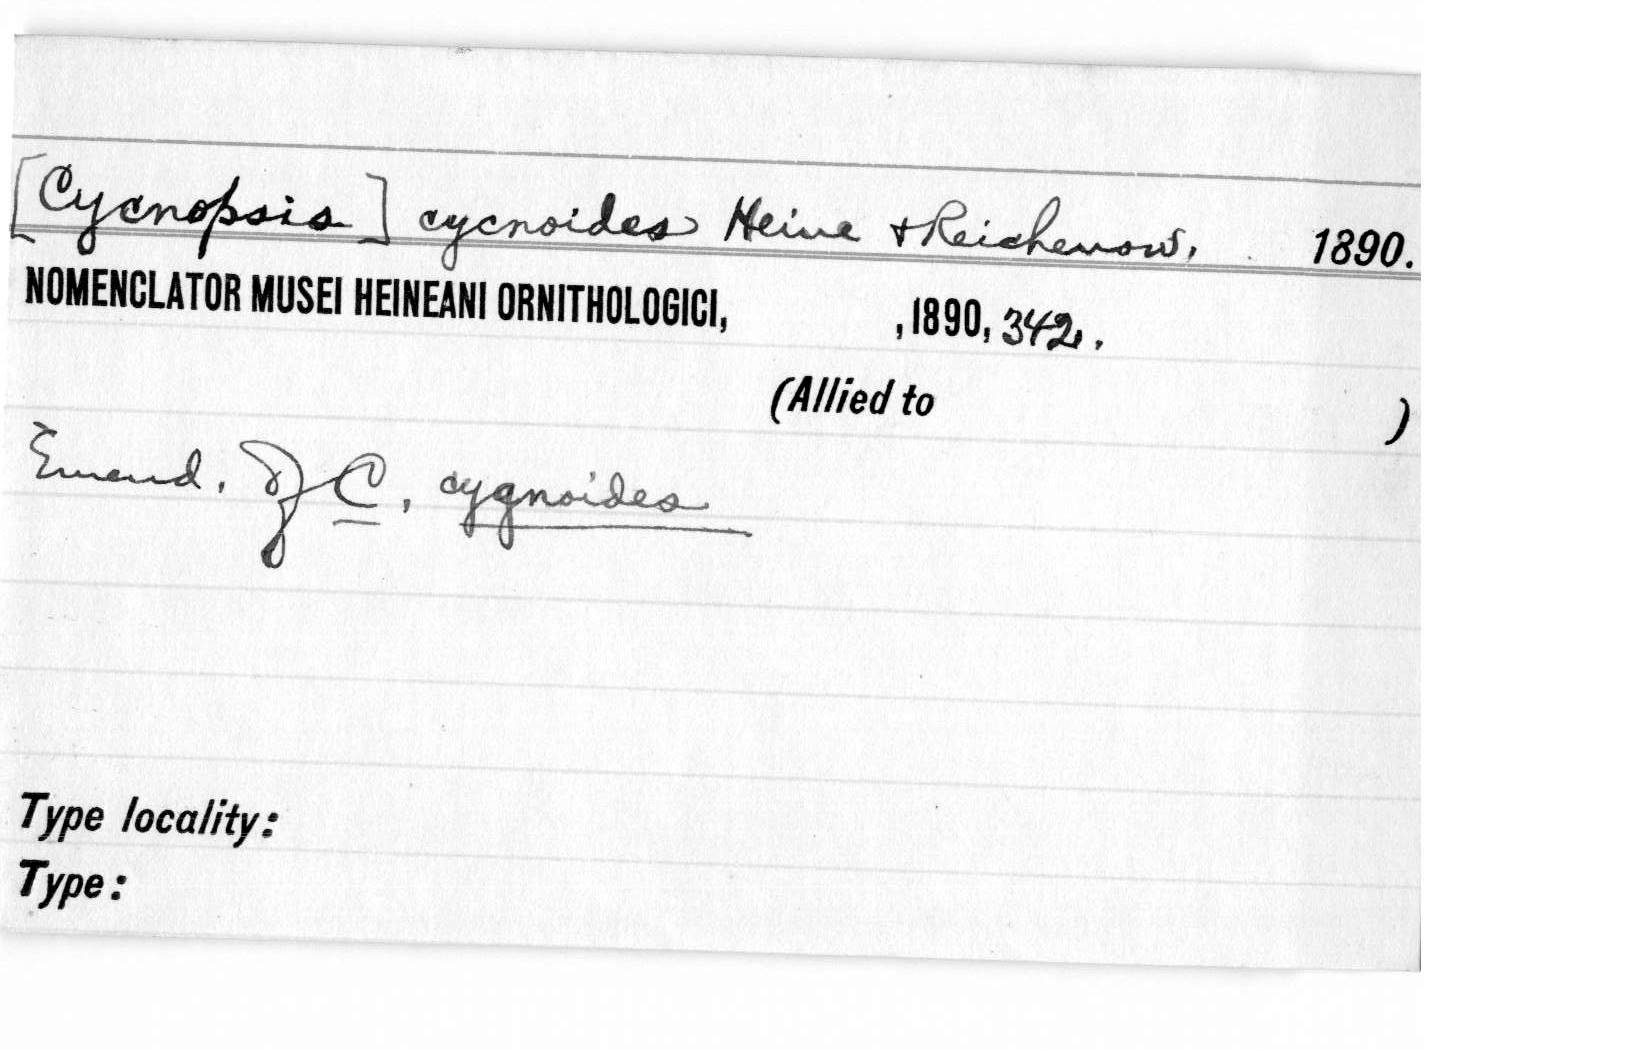 [Cycnopsis] cycnoides Heine + Reichenow, 1890.
NOMENCLATOR MUSEI HEINEANI ORNITHOLOGICI, , 1890, 342.
(Allied to )
Emend. of C. cygnoides
Type locality:
Type: